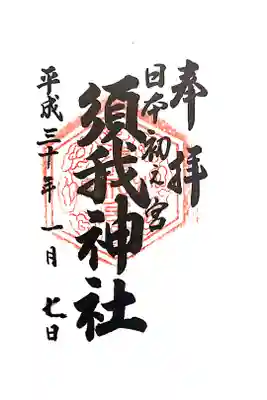 奉拝
日本初之宮
須我神社
平成三十年一月七日